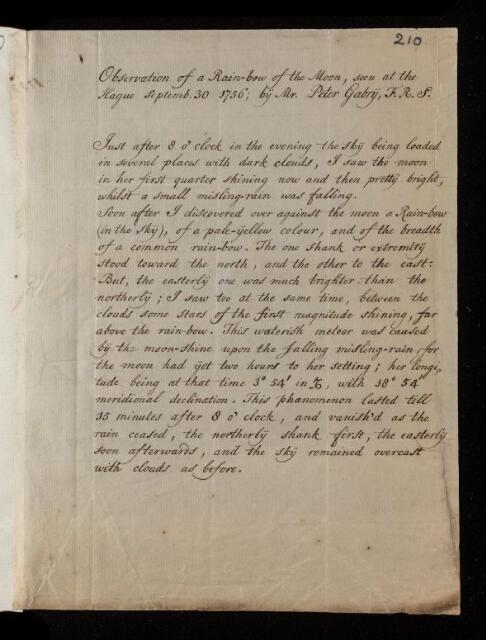 210
Observation of a Rain-bow of the Moon, seen at the
Hague Septemb. 30 1756; by Mr. Peter Gabrÿ, F.R.S.
Just after 8 o' clock in the evening the sky being loaded
in several places with dark clouds, I saw the moon
in her first quarter shining now and then pretty bright,
whilst a small misling-rain was falling.
Soon after I discovered over against the moon a Rain-bow
(in the sky), of a pale-yellow colour, and of the breadth
of a common rain-bow. The one shank or extremity
stood toward the north, and the other to the east:
But, the easterly one was much brighter than the
northerly; I saw too at the same time, between the
clouds some stars of the first magnitude shining, far
above the rain-bow. This waterish meteor was caused
by the moon-shine upon the falling misling-rain, for
the moon had yet two hours to her setting; her longi,
tude being at that time 3° 54' in ♑, with 18° 54'
meridional declination. This phanomenon lasted till
15 minutes after 8 o' clock, and vanish'd as the
rain ceased, the northerly shank first, the easterly
soon afterwards, and the sky remained overcast
with clouds as before.